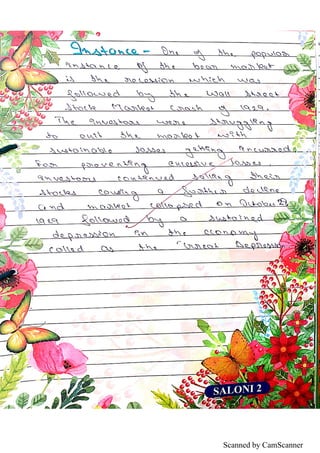 Instance - One of the popular
instance of the bear market
is the recession which was
followed by the Wall Street
Stock Market Crash of 1929.
The investors were struggling
to exit the market with
sustainable losses getting incurred.
For preventing excessive losses
investors continued selling their
stocks causing a further decline
and market collapsed on October 29
1929 followed by a sustained
depression in the economy
called as the "Great Depression
SALONI 2
Scanned by CamScanner